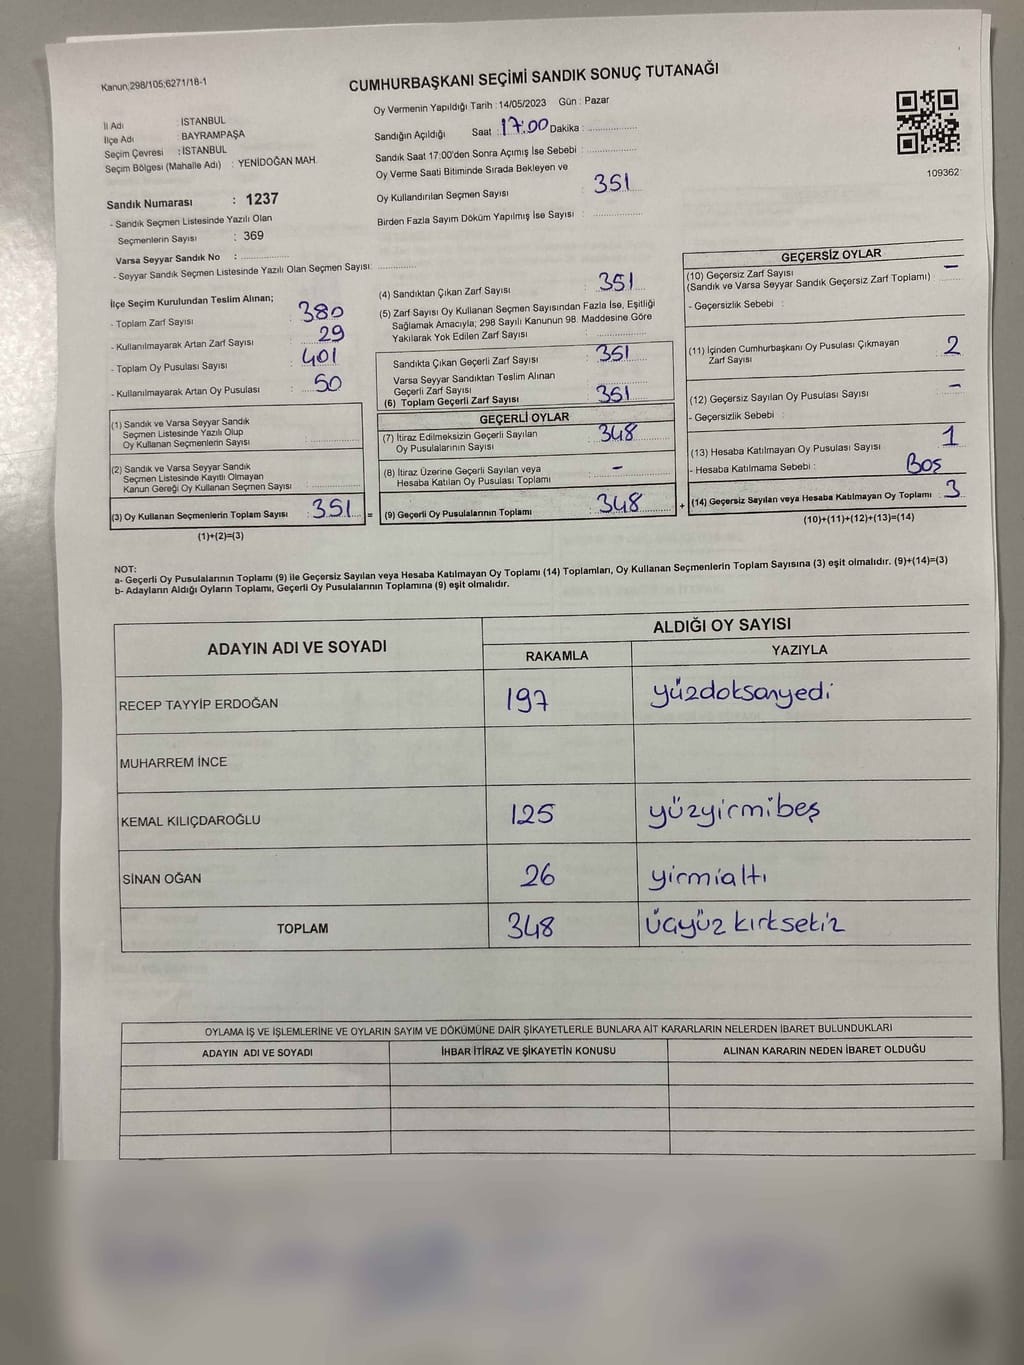 Kanun;298/105;6271/18-1
CUMHURBAŞKANI SEÇİMİ SANDIK SONUÇ TUTANAĞI
İl Adı : İSTANBUL
İlçe Adı : BAYRAMPAŞA
Seçim Çevresi : İSTANBUL
Seçim Bölgesi (Mahalle Adı) : YENİDOĞAN MAH.
Sandık Numarası : 1237
- Sandık Seçmen Listesinde Yazılı Olan
Seçmenlerin Sayısı : 369
Varsa Seyyar Sandık No :
- Seyyar Sandık Seçmen Listesinde Yazılı Olan Seçmen Sayısı:
Oy Vermenin Yapıldığı Tarih : 14/05/2023 Gün : Pazar
Sandığın Açıldığı Saat : 17:00 Dakika :
Sandık Saat 17:00'den Sonra Açımış İse Sebebi :
Oy Verme Saati Bitiminde Sırada Bekleyen ve
Oy Kullandırılan Seçmen Sayısı : 351
Birden Fazla Sayım Döküm Yapılmış İse Sayısı :
109362
İlçe Seçim Kurulundan Teslim Alınan;
- Toplam Zarf Sayısı : 380
- Kullanılmayarak Artan Zarf Sayısı : 29
- Toplam Oy Pusulası Sayısı : 401
- Kullanılmayarak Artan Oy Pusulası : 50
(1) Sandık ve Varsa Seyyar Sandık
Seçmen Listesinde Yazılı Olup
Oy Kullanan Seçmenlerin Sayısı :
(2) Sandık ve Varsa Seyyar Sandık
Seçmen Listesinde Kayıtlı Olmayan
Kanun Gereği Oy Kullanan Seçmen Sayısı :
(3) Oy Kullanan Seçmenlerin Toplam Sayısı : 351 =
(1)+(2)=(3)
(4) Sandıktan Çıkan Zarf Sayısı : 351
(5) Zarf Sayısı Oy Kullanan Seçmen Sayısından Fazla İse, Eşitliği
Sağlamak Amacıyla; 298 Sayılı Kanunun 98. Maddesine Göre
Yakılarak Yok Edilen Zarf Sayısı :
Sandıkta Çıkan Geçerli Zarf Sayısı : 351
Varsa Seyyar Sandıktan Teslim Alınan
Geçerli Zarf Sayısı :
(6) Toplam Geçerli Zarf Sayısı : 351
GEÇERLİ OYLAR
(7) İtiraz Edilmeksizin Geçerli Sayılan
Oy Pusulalarının Sayısı : 348
(8) İtiraz Üzerine Geçerli Sayılan veya
Hesaba Katılan Oy Pusulası Toplamı : -
(9) Geçerli Oy Pusulalarının Toplamı : 348 +
GEÇERSİZ OYLAR
(10) Geçersiz Zarf Sayısı
(Sandık ve Varsa Seyyar Sandık Geçersiz Zarf Toplamı) : -
- Geçersizlik Sebebi :
(11) İçinden Cumhurbaşkanı Oy Pusulası Çıkmayan
Zarf Sayısı : 2
(12) Geçersiz Sayılan Oy Pusulası Sayısı : -
- Geçersizlik Sebebi :
(13) Hesaba Katılmayan Oy Pusulası Sayısı : 1
- Hesaba Katılmama Sebebi : Boş
(14) Geçersiz Sayılan veya Hesaba Katılmayan Oy Toplamı : 3
(10)+(11)+(12)+(13)=(14)
NOT:
a- Geçerli Oy Pusulalarının Toplamı (9) ile Geçersiz Sayılan veya Hesaba Katılmayan Oy Toplamı (14) Toplamları, Oy Kullanan Seçmenlerin Toplam Sayısına (3) eşit olmalıdır. (9)+(14)=(3)
b- Adayların Aldığı Oyların Toplamı, Geçerli Oy Pusulalarının Toplamına (9) eşit olmalıdır.
ADAYIN ADI VE SOYADI
ALDIĞI OY SAYISI
RAKAMLA YAZIYLA
RECEP TAYYİP ERDOĞAN 197 yüzdoksanyedi
MUHARREM İNCE
KEMAL KILIÇDAROĞLU 125 yüzyirmibeş
SİNAN OĞAN 26 yirmialtı
TOPLAM 348 üçyüz kırksekiz
OYLAMA İŞ VE İŞLEMLERİNE VE OYLARIN SAYIM VE DÖKÜMÜNE DAİR ŞİKAYETLERLE BUNLARA AİT KARARLARIN NELERDEN İBARET BULUNDUKLARI
ADAYIN ADI VE SOYADI İHBAR İTİRAZ VE ŞİKAYETİN KONUSU ALINAN KARARIN NEDEN İBARET OLDUĞU